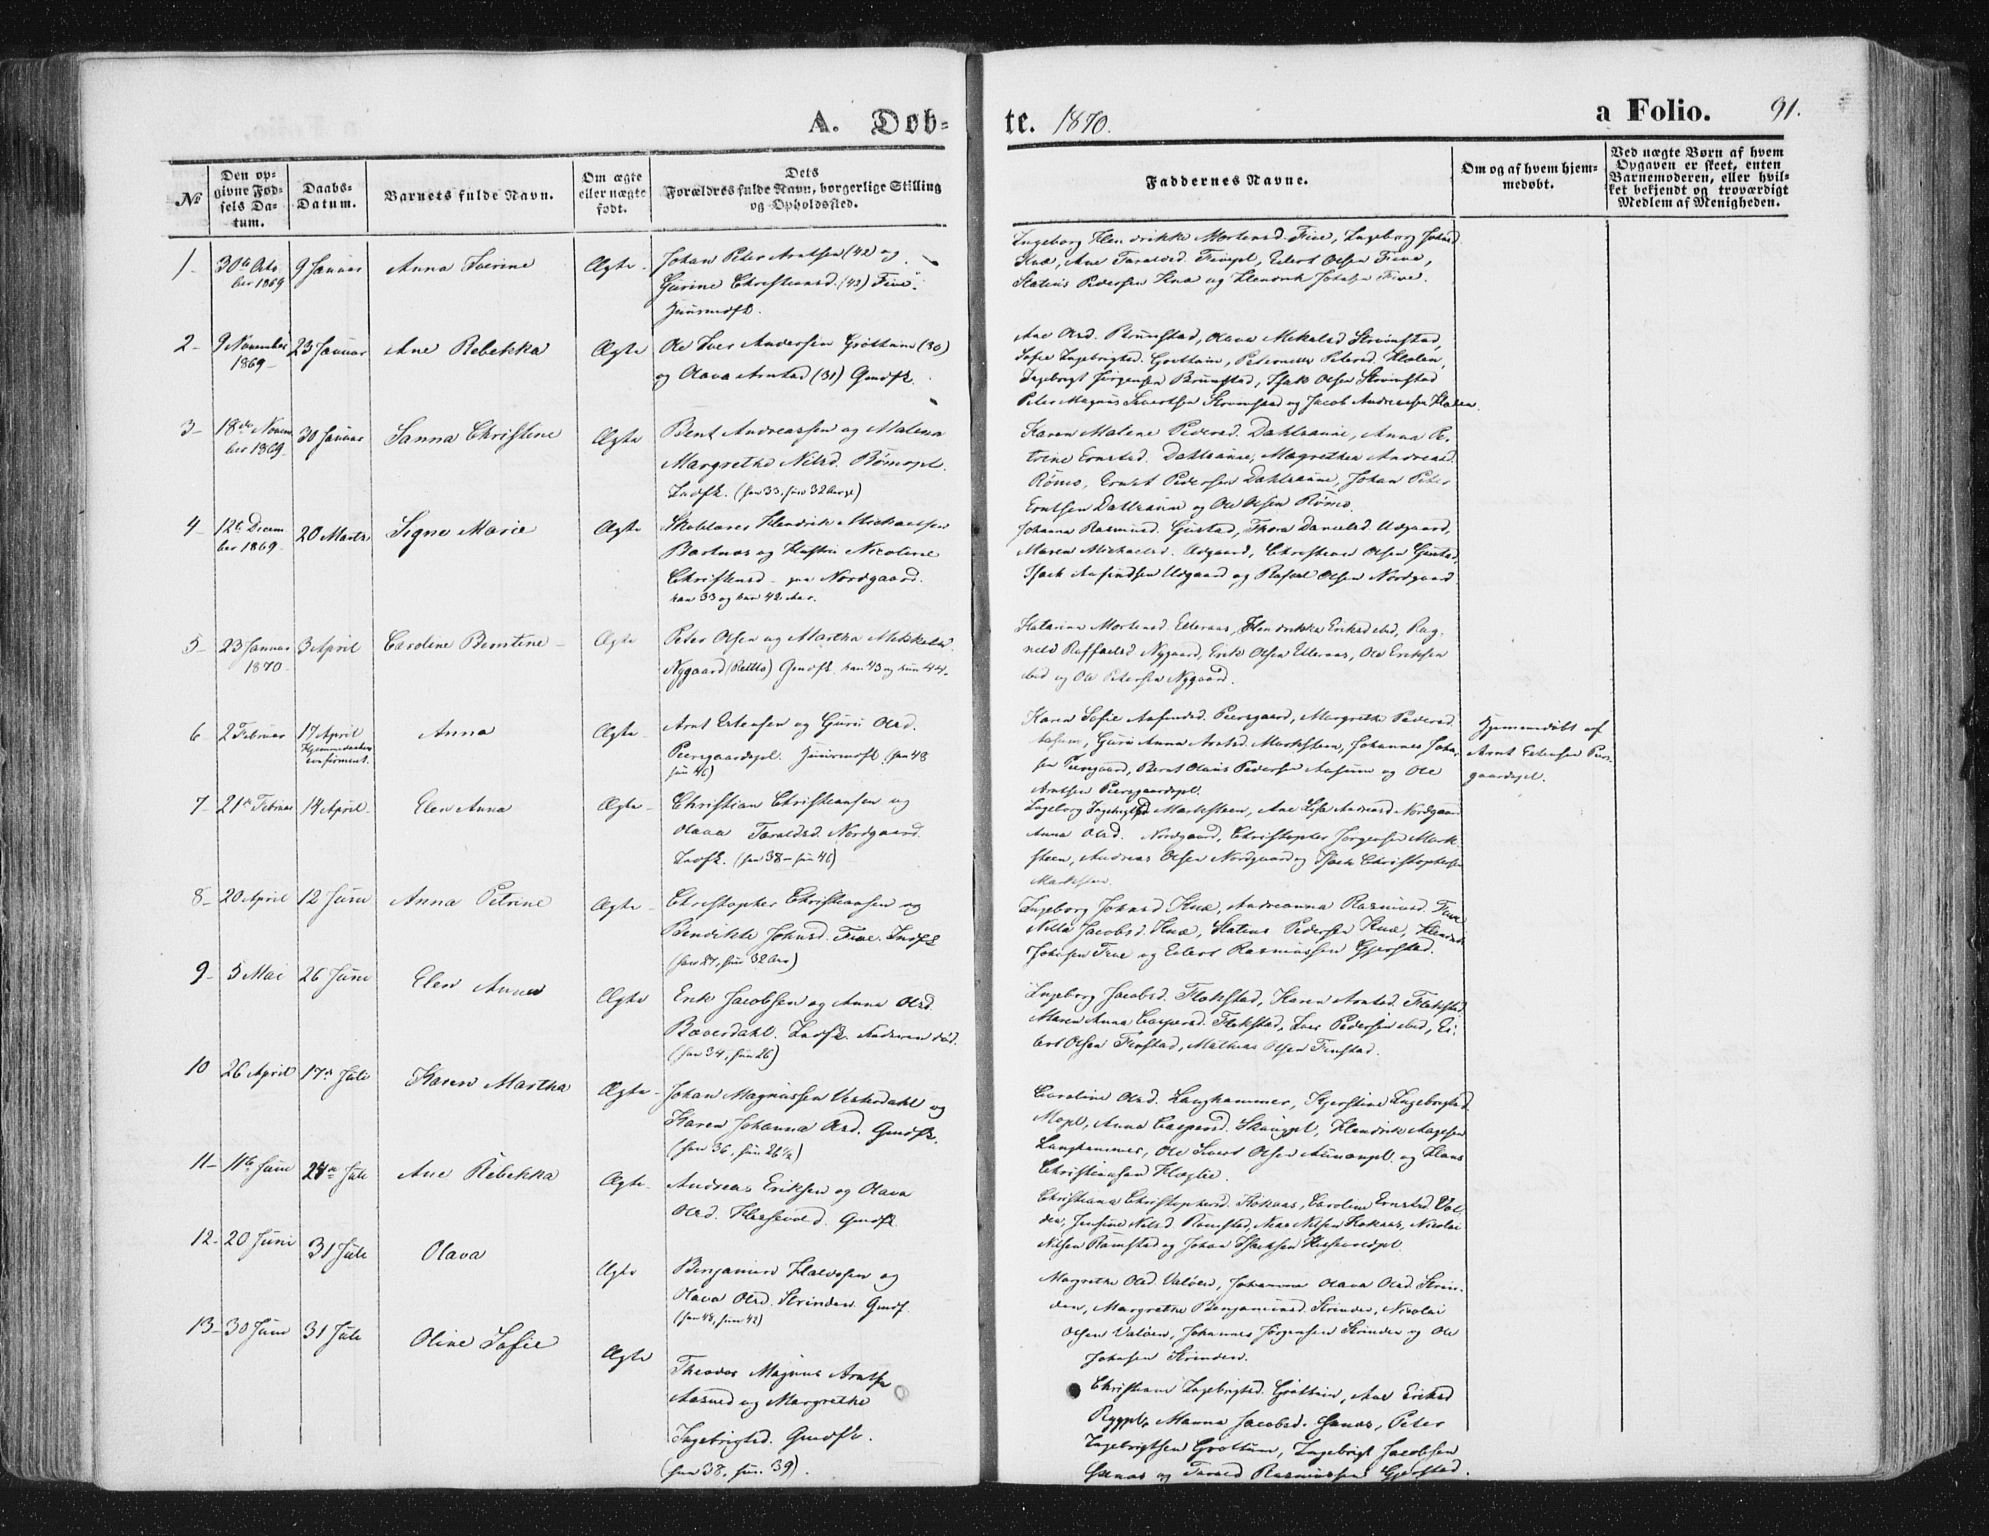 A. Døb-
te. 1870.
a Folio.
91.
№
Den op-
givne Fød-
sels Da-
tum.
Daabs-
Datum.
Barnets fulde Navn.
Om ægte
eller uægte
født.
Dets
Forældres fulde Navn, borgerlige Stilling
og Opholdssted.
Faddernes Navne.
Om og af hvem hjem-
medøbt.
Ved uægte Børn af hvem
Opgaven er skeet, enten
Barnemoderen, eller hvil-
ket bekjendt og troværdigt
Medlem af Menigheden.
1-
30te Octo
ber 1869
9 Januar
Anna Severine
Ægte
Johan Peter Arntsen (42) og
Gurine Christiansd. (43) Five.
Huusmdfk.
Ingeborg Hendrikke Mortensd. Five, Ingeborg Johnsd
Hux, Ane Taraldsd. Fivepl, Edert Olsen Five,
Statius Pedersen Hux og Hendrik Johnsen Five.
2-
9 November
1869-
23 Januar
Ane Rebekka
Ægte
Ole Iver Andersen Grøttum (30)
og Olava Arntsd (31) Gmdfk.
Ane Olsd. Brunstad, Olava Mikalsd Strinstad,
Sofie Ingebrigtsd. Grøttum, Peternelle Petersd. Holen,
Ingebrigt Jørgensen Brunstad, Isak Olsen Strinstad
Peter Magnus Sivertsen Strinstad og Jacob Andreassen Holen.
3-
18de Novem
ber 1869-
30 Januar
Sanna Christine
Ægte
Bent Andreassen og Malena
Margrethe Nilsd. Rømopl.
Indfk. (han 33, hun 32 Aar)
Karen Malene Pedersd. Dahlraune, Anna Pe-
trine Erntsd. Dahlraune, Margrethea Andreasd.
Rømo, Ernst Pedersen Dahlraune, Johan Peter
Erntsen Dahlraune og Ole Olsen Rømo.
4-
12te Decem
ber 1869-
20 Marts
Signe Marie
Ægte
Skolelærer Hendrik Michaelsen
Bartnes og Hustru Nicoline
Christensd - paa Nordgaard.
han 33 og hun 42 Aar.
Johanna Rasmusd. Gustad, Thora Danielsd. Udgaard,
Maren Michaelsd. Udgaard, Christian Olsen Gustad,
Isach Anfindsen Udgaard og Rafael Olsen Nordgaard
5-
23 Januar
1870-
3 April
Caroline Berntine -
Ægte
Peter Olsen og Martha Mikkelsd.
Nygaard Gmdfk. han 43 og hun 44.
Katarina Mortensd Elleraas, Hendrikka Eriksd ibid, Rag-
nild Raffaelsd Nygaard, Erik Olsen Elleraas, Ole Eriksen
ibid og Ole Petersen Nygaard.
6-
2 Februar
17 April
Hjemmedaaben
confirmert.
Anna
Ægte
Arnt Estensen og Guru Olsd.
Peersgaardspl. Huusmdfk. (han 48
hun 46)
Karen Sofie Anfindsd. Peersgaard, Margrethe Pedersd.
Aasum, Guru Anna Arntsd. Marksteen, Johannes Joha-
sen Peersgaard, Bernt Olaus Pedersen Aasum og Ole
Arntsen Peersgaardspl.
Hjemmedøbt af
Arnt Estensen Peers-
gaardspl.
7-
21de Februar
18 April
Elen Anna
Ægte -
Christian Christiansen og
Olava Taraldsd. Nordgaard.
Indfk. (han 38 - hun 46)
Ingeborg Ingebrigtsd Marksteen, Ane Lisa Andreasd Nordgaard
Anna Olsd. Nordgaard, Christopher Jørgensen Mark-
steen, Andreas Olsen Nordgaard og Isach Christophersen
Marksteen.
8-
20 April
12 Juni
Anna Petrine
Ægte -
Christopher Christiansen og
Bendikte Johnsd. Five. Indfk
(han 27, hun 32 Aar)
Ingeborg Johnsd Hux, Andreanna Rasmusd. Five
Nilla Jacobsd. Hux, Statius Pedersen Hux, Hendrik
Johnsen Five og Edert Rasmussen Gjerstad.
9-
5 Mai
26 Juni
Elen Anna
Ægte
Erik Jacobsen og Anna Olsd.
Bæverdahl. Indfk. Moderen død.
(han 34, hun 26)
Ingeborg Jacobsd. Flekstad, Karen Arntsd. Flekstad
Maren Anna Caspersd. Flekstad, Iver Pedersen ibid, Ei-
bert Olsen Finstad, Mathias Olsen Finstad.
10
26 April
17de Juli
Karen Martha
Ægte -
Johan Magnussen Vesterdahl og
Karen Johanna Olsd. Gmdfk.
(han 36, hun 26 ½)
Caroline Olsd. Langhammer, Kjerstine Ingebrigtsd.
Mopl, Anna Caspersd. Skaugpl, Hendrik Aagesen
Langhammer, Ole Sivert Olsen Aunanpl. og Hans
Christiansen Høglie.
11-
11te Juni
24de Juli
Ane Rebekka
Ægte-
Andreas Eriksen og Olava
Olsd. Hersevold. Gmdfk.
Christiana Christophersd. Kokaas, Caroline Ernstsd. Vol-
den, Jensine Nilsd Ramstad, Nils Nilsen Kokaas, Nicolai
Nilsen Ramstad og Johan Isachsen Hersevoldpl.
12-
20 Juni
31 Juli
Olava
Ægte
Benjamin Halvorsen og
Olava Olsd. Strinden. Gmdf.
(han 48, hun 42)
Margrethe Olsd. Valøen, Johanna Olava Olsd. Strin-
den, Margrethe Benjaminsd. Strinden, Nicolai
Olsen Valøen, Johannes Jørgensen Strinden og Ole
Johnsen Strinden.
13-
30 Juni
31 Juli
Oline Sofie
Ægte
Theodor Magnus Arntsen
Aasved og Margrethe
Ingebrigtsd. Gmdfk.
(han 38, hun 39).
Christiane Ingebrigtsd. Grøttum, Ane Eriksd
Ryggpl, Manna Jacobsd. Granas, Peter
Ingebrigtsen Grøttum, Ingebrigt Jacobsen
Granas og Tarald Rasmussen Gjerstad.